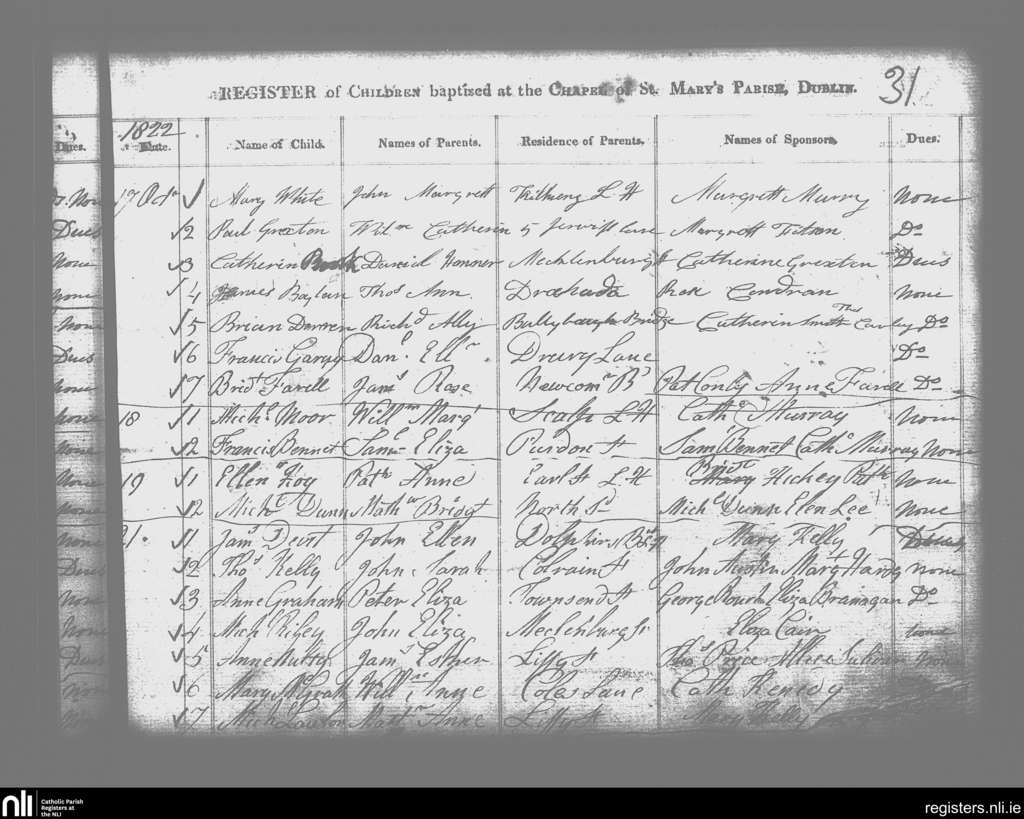 REGISTER of CHILDREN baptized at the CHAPEL of St. MARY'S PARISH, DUBLIN. 31
1822
Dues. Date. Name of Child. Names of Parents. Residence of Parents. Names of Sponsors. Dues.
17 Octr 1 Mary White John Margrett L H Margrett Murry None
Dues 2 Paul Grexton Wilm Catherin 5 Jerviss lane Margrett Do
None 3 Catherin Daniel Honner Mecklenburg St Catherine Grexton Dues
None 4 James Baylan Thos Ann Drahada Rose Condran None
None 5 Brian Darren Richd Ally Ballybaugh Bridge Catherin Smith Thos Do
Dues 6 Francis Danl Elln Drury Lane Do
None 7 Bridt Farell Jams Rose Newcomn Bs Pat Conby Anne Farell Do
None 18 1 Michl Moor Willm Margt L H Cathe Murray None
None 2 Francis Bennet Saml Eliza Purdon St Sam Bennet Cathe Murray None
None 19 1 Ellen Foy Patk Anne Earl St L H Bridt Hickey Patk None
None 2 Michl Dunn Mathw Bridgt North St Michl Dunn Elen Lee None
None 21. 1 Jams Devit John Ellen Dolphins Mary Kelly Dues
Dues 2 Thos Kelly John Sarah Colrain St John Austin Margt Hardy None
Non 3 Anne Graham Peter Eliza Townsend St George Rourk Eliza Branagan Do
None 4 Mich Riley John Eliza Mecklenburg St Eliza Cain None
Dues 5 Anne Nutty Jams Esther Liffy St Thos Price Allice None
None 6 Mary McGrath Willm Anne Coles Lane Cath Kenedy
None 7 Michl Lawlor Martn Anne Liffy St Mary Kelly
nli Catholic Parish
Registers at
the NLI
registers.nli.ie